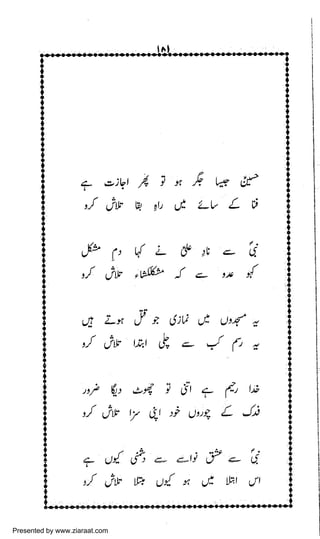 ۱۸۱
حسینؑ جیسا جگر ہو تو پھر اجازت ہے
فنا کے سائے میں راہِ بقا تلاش کرو
نبیؐ سے نادِ علیؑ نے کہا دمِ مشکل
کہو عدو سے کہ مشکلکشاء تلاش کرو
یہ مسجدوں میں نمازی جو قتل ہوتے ہیں
یہ رسم کب سے چلی ابتدا تلاش کرو
خدا رحیم ہے اتنی تو چھوٹ دیگا ضرور
فدک کے چوروں خود اپنی سزا تلاش کرو
نبیؐ سے عشق نواسے سے دشمنی کیوں ہے
اس ابتلا میں ہو کیوں مبتلا تلاش کرو
Presented by www.ziaraat.com